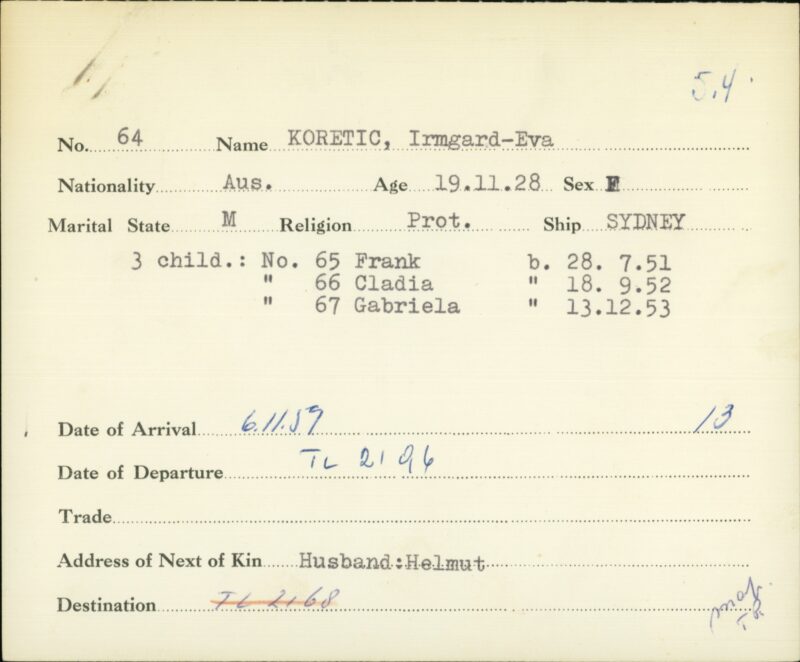 5.4
No. 64 Name KORETIC, Irmgard-Eva
Nationality Aus. Age 19.11.28 Sex F
Marital State M Religion Prot. Ship SYDNEY
3 child.: No. 65 Frank b. 28. 7.51
" 66 Cladia " 18. 9.52
" 67 Gabriela " 13.12.53
Date of Arrival 6.11.59 13
Date of Departure TL 2196
Trade
Address of Next of Kin Husband:Helmut
Destination TL 2168